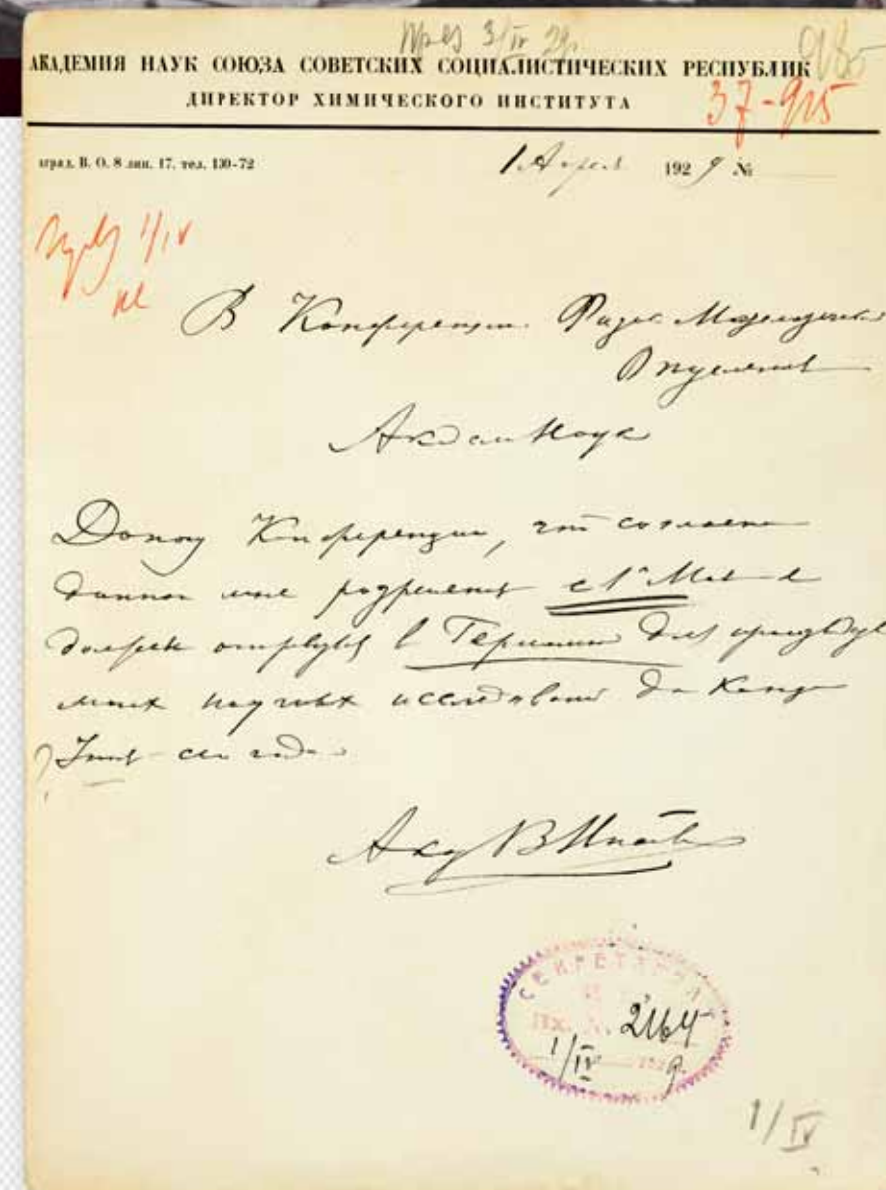 През 3/IV 29г.
985
АКАДЕМИЯ НАУК СОЮЗА СОВЕТСКИХ СОЦИАЛИСТИЧЕСКИХ РЕСПУБЛИК
ДИРЕКТОР ХИМИЧЕСКОГО ИНСТИТУТА
37-915
нград. В. О. 8 лин. 17. тел. 130-72
1 Апреля 1929 №
1/IV
В Конференцию Физико Математич
Отделения
Академ Наук
Доношу Конференции, что согласно
данного мне разрешения с 1го Мая я
должен отправиться в Германию для производства
моих научных исследований до конца
Июня сего года
Акад В Ипатьев
СЕКРЕТАРИАТ
ВХ. №. 2164
1/IV 1929 г.
1/IV